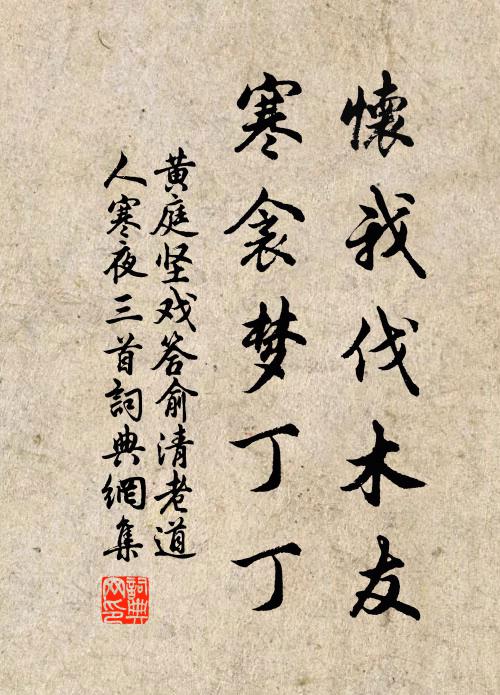 懷我伐木友
寒衾梦丁丁
黄庭坚戏答俞清老道
人寒夜三首詞典網集
詞典
网印